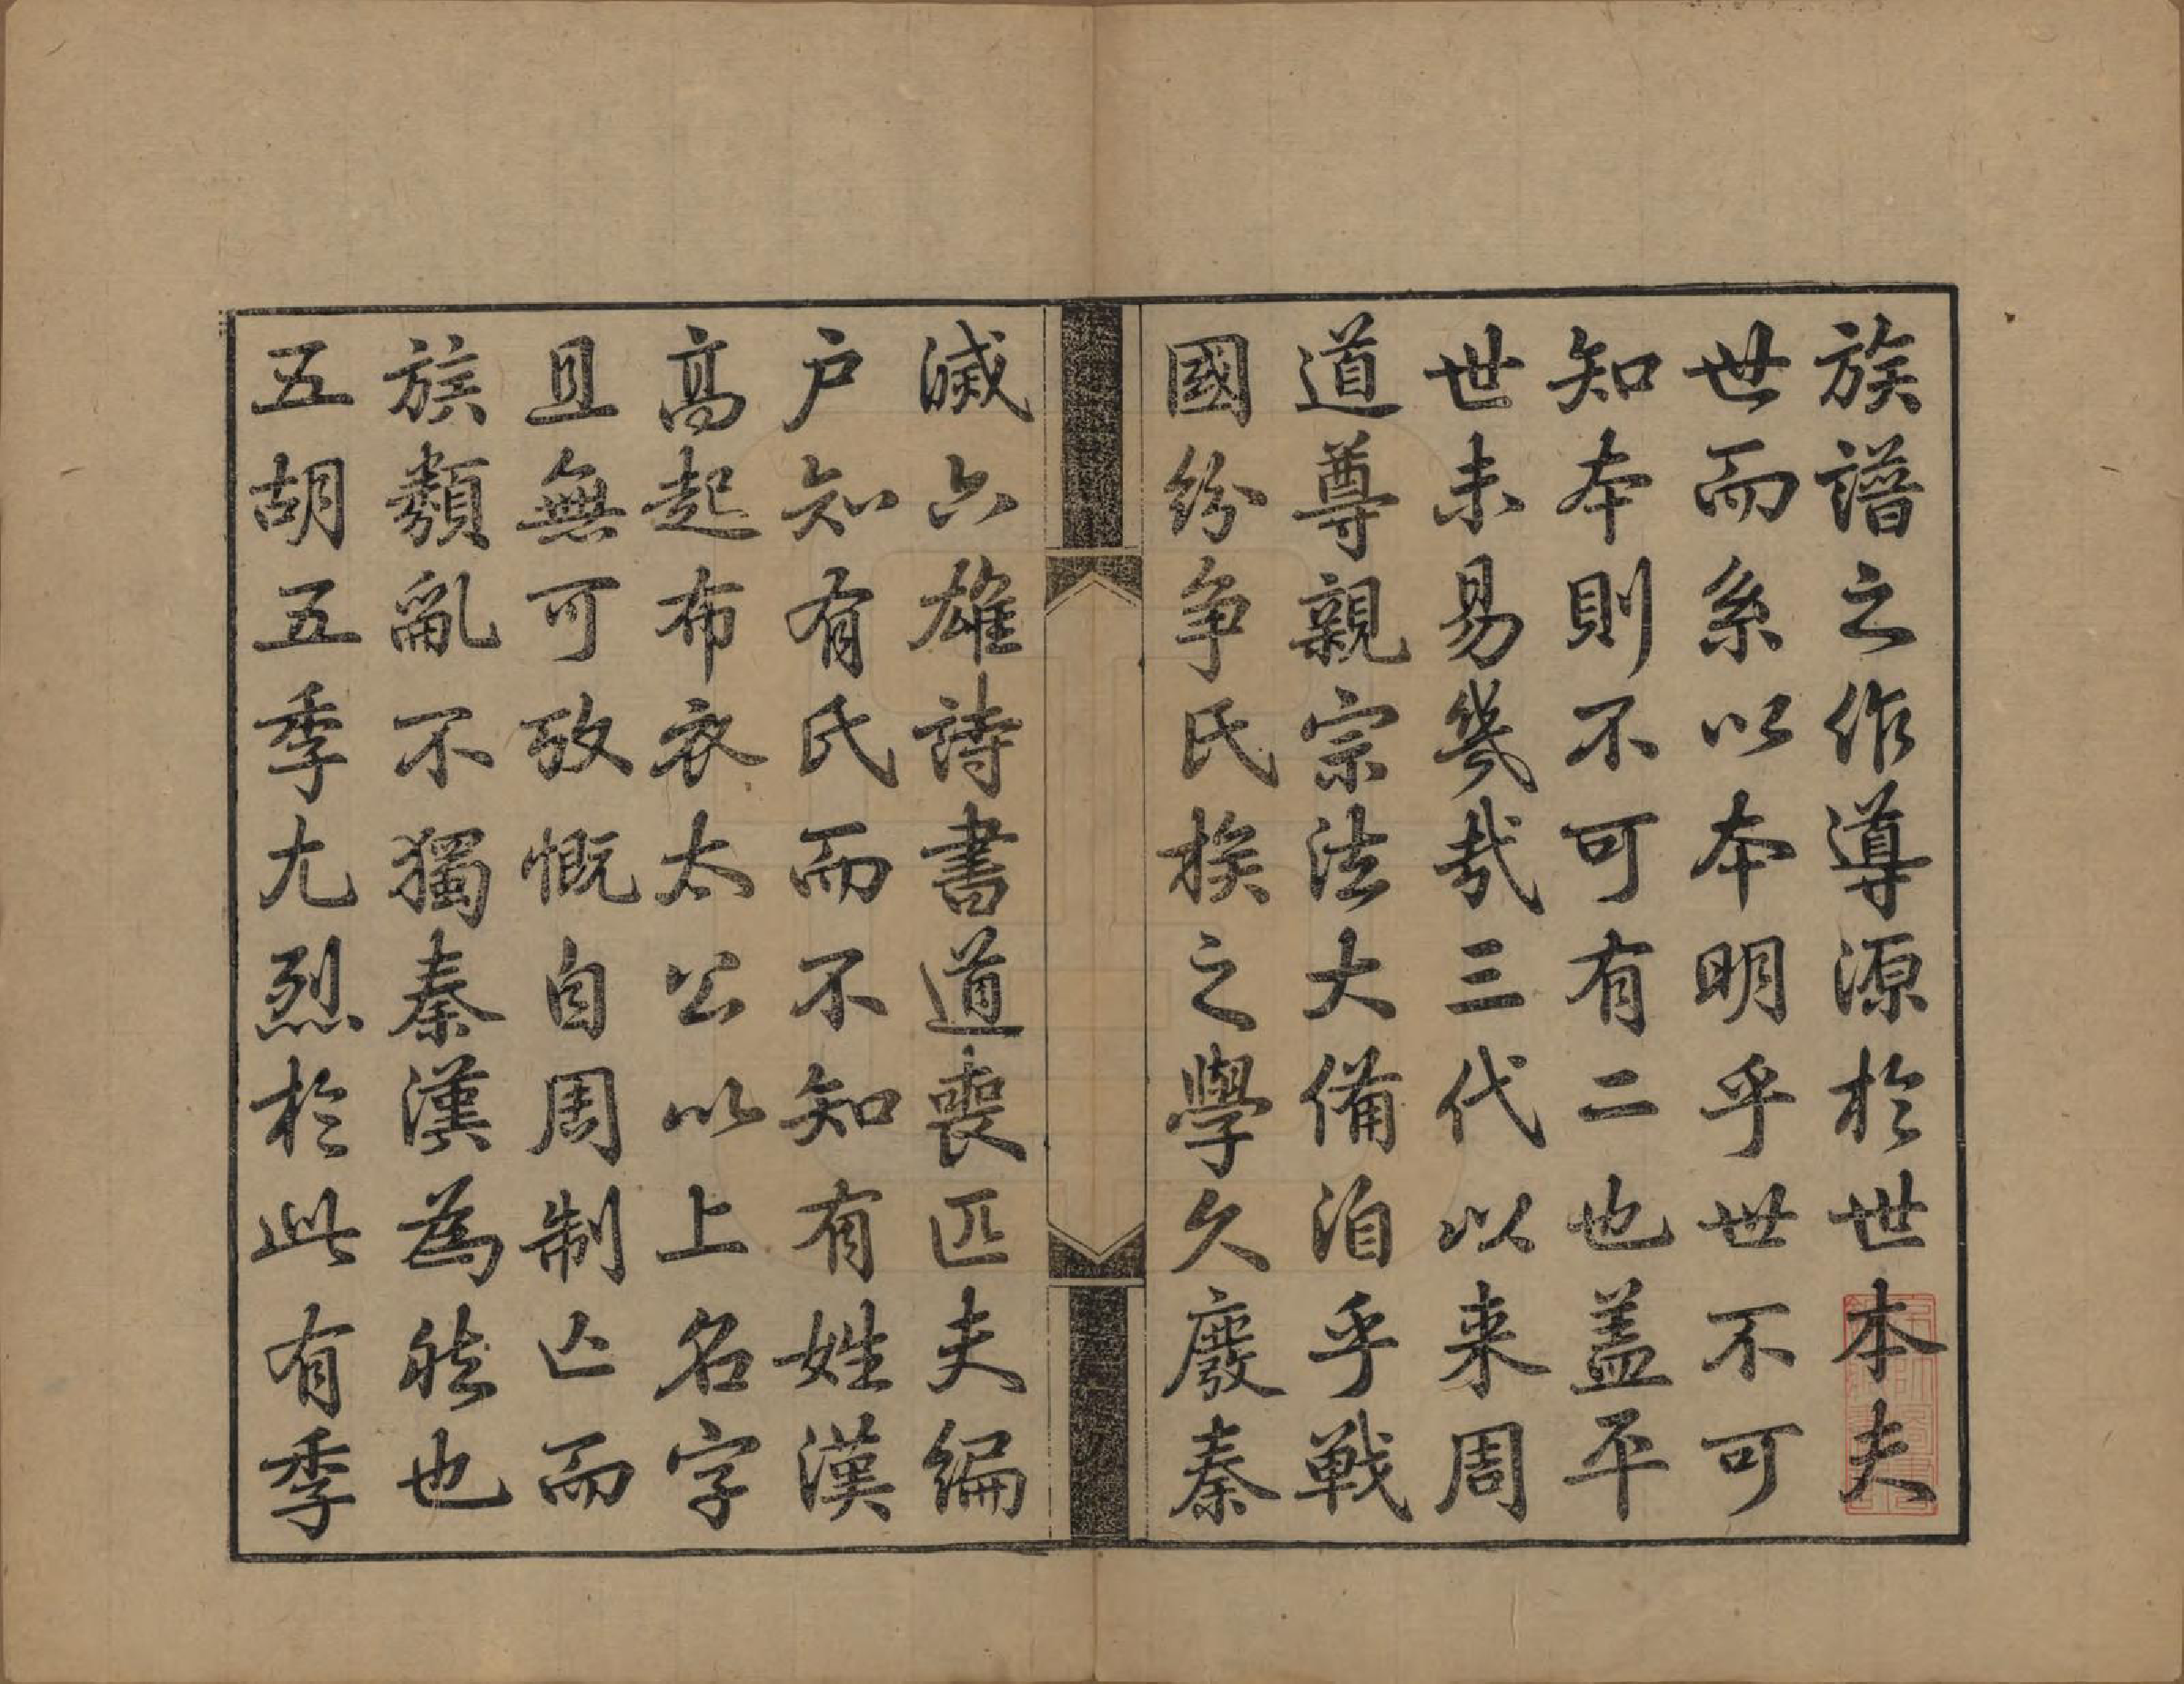 族譜之作導源於世本夫
世而系以本明乎世不可
知本則不可有二也盖平
世未易幾哉三代以来周
道尊親宗法大備洎乎戰
國紛争氏族之學久廢秦
滅六雄詩書道喪匹夫編
户知有氏而不知有姓漢
高起布衣太公以上名字
且無可攷慨自周制亡而
族類亂不獨秦漢為然也
五胡五季尤烈於此有季